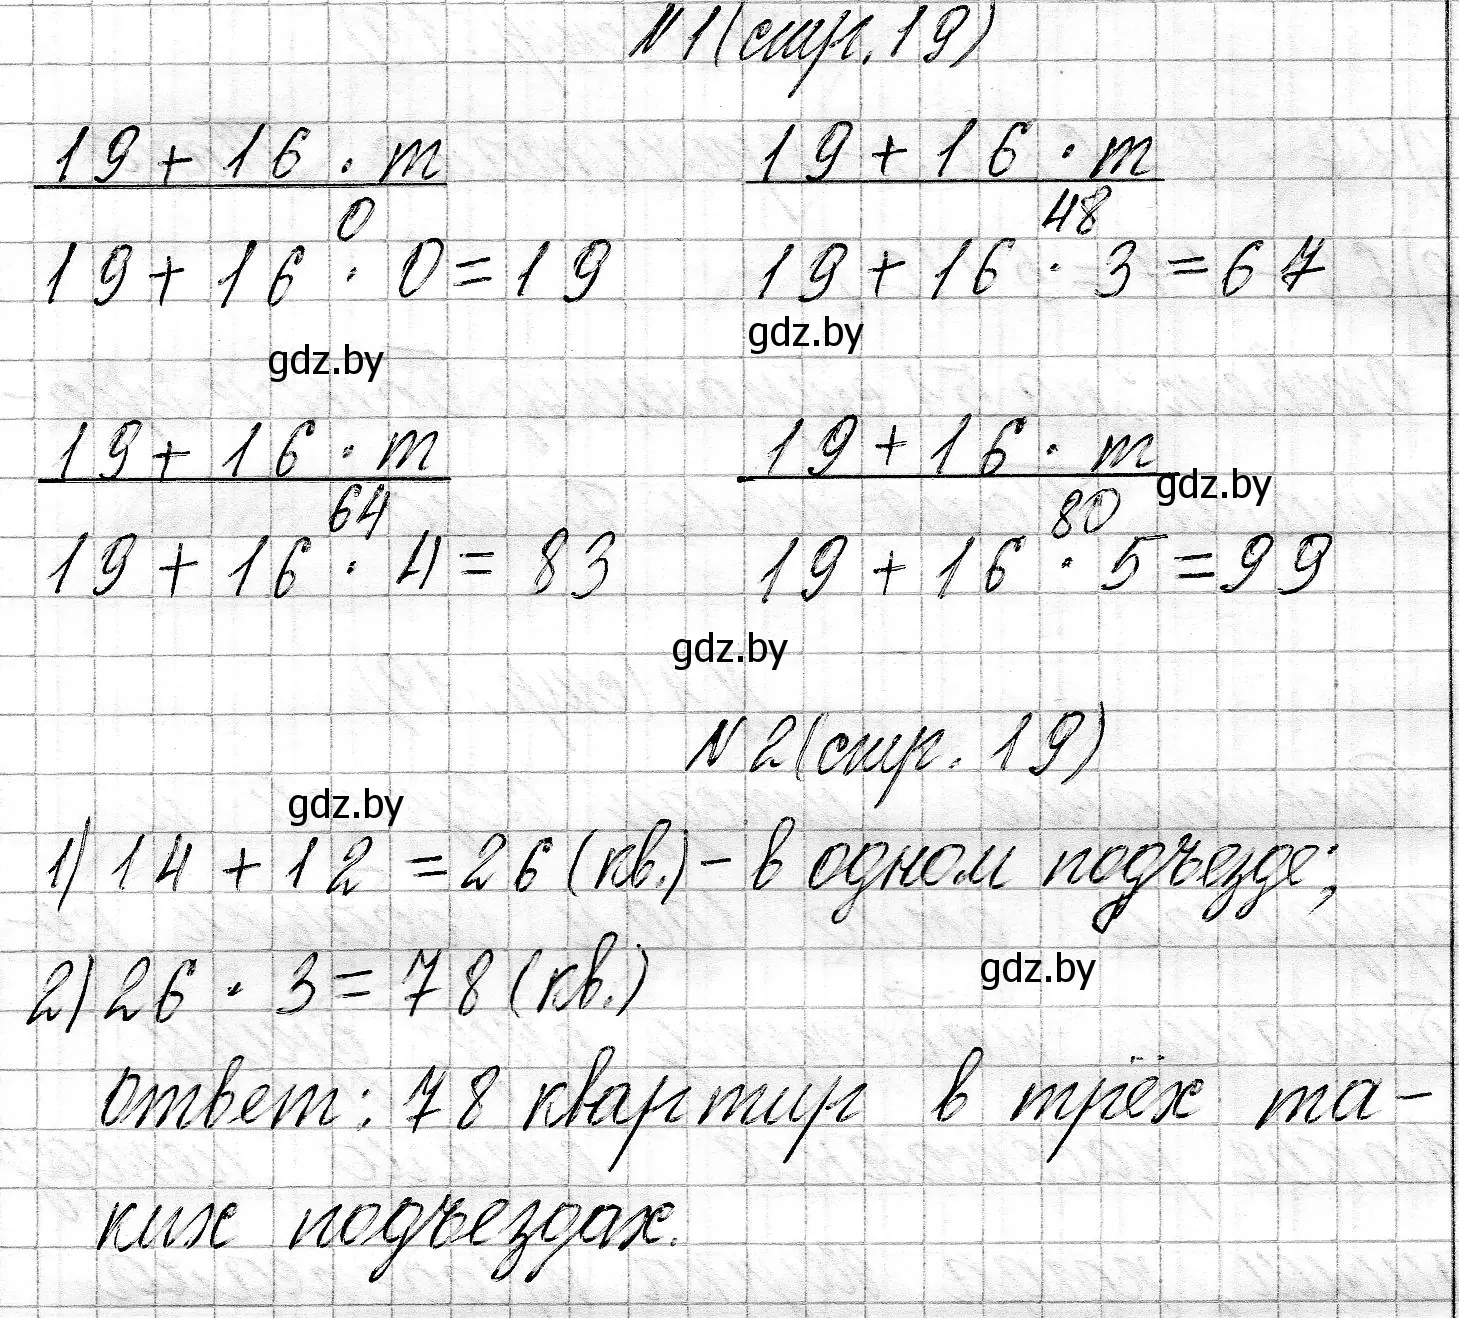 №1(стр. 19)
19 + 16 · m 19 + 16 · m
0 48
19 + 16 · 0 = 19 19 + 16 · 3 = 67
gdz.by gdz.by
19 + 16 · m 19 + 16 · m
gdz.by
64 80
19 + 16 · 4 = 83 19 + 16 · 5 = 99
gdz.by
№2(стр. 19)
gdz.by
1) 14 + 12 = 26 (кв.) - в одном подъезде;
2) 26 · 3 = 78 (кв.)
gdz.by
ответ: 78 квартир в трёх та-
ких подъездах.